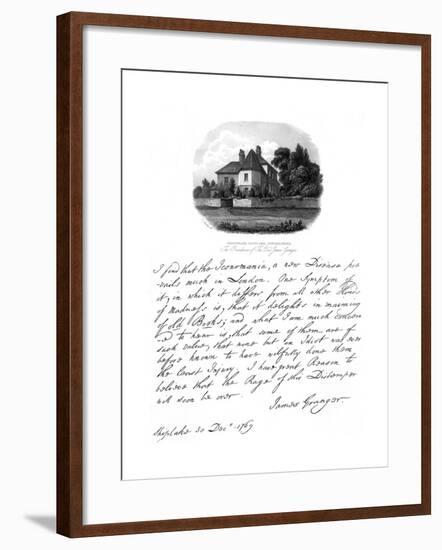 SHIPLAKE VICARAGE, OXFORDSHIRE.
The Residence of The Revd. James Granger.
I find that the Iconomania, a new Disease pre
vails much in London. One Symptom of
it, in which it differs from all other Kinds
of Madness is, that it delights in maiming
of old Books; and what I am much concern
=ed to hear is, that some of them are of
such value, that none but an Idiot was ever
before known to have wilfully done them
the least Injury. I have great Reason to
believe that the Rage of this Distemper
will soon be over.
James Granger.
Shiplake 30 Decr. 1769